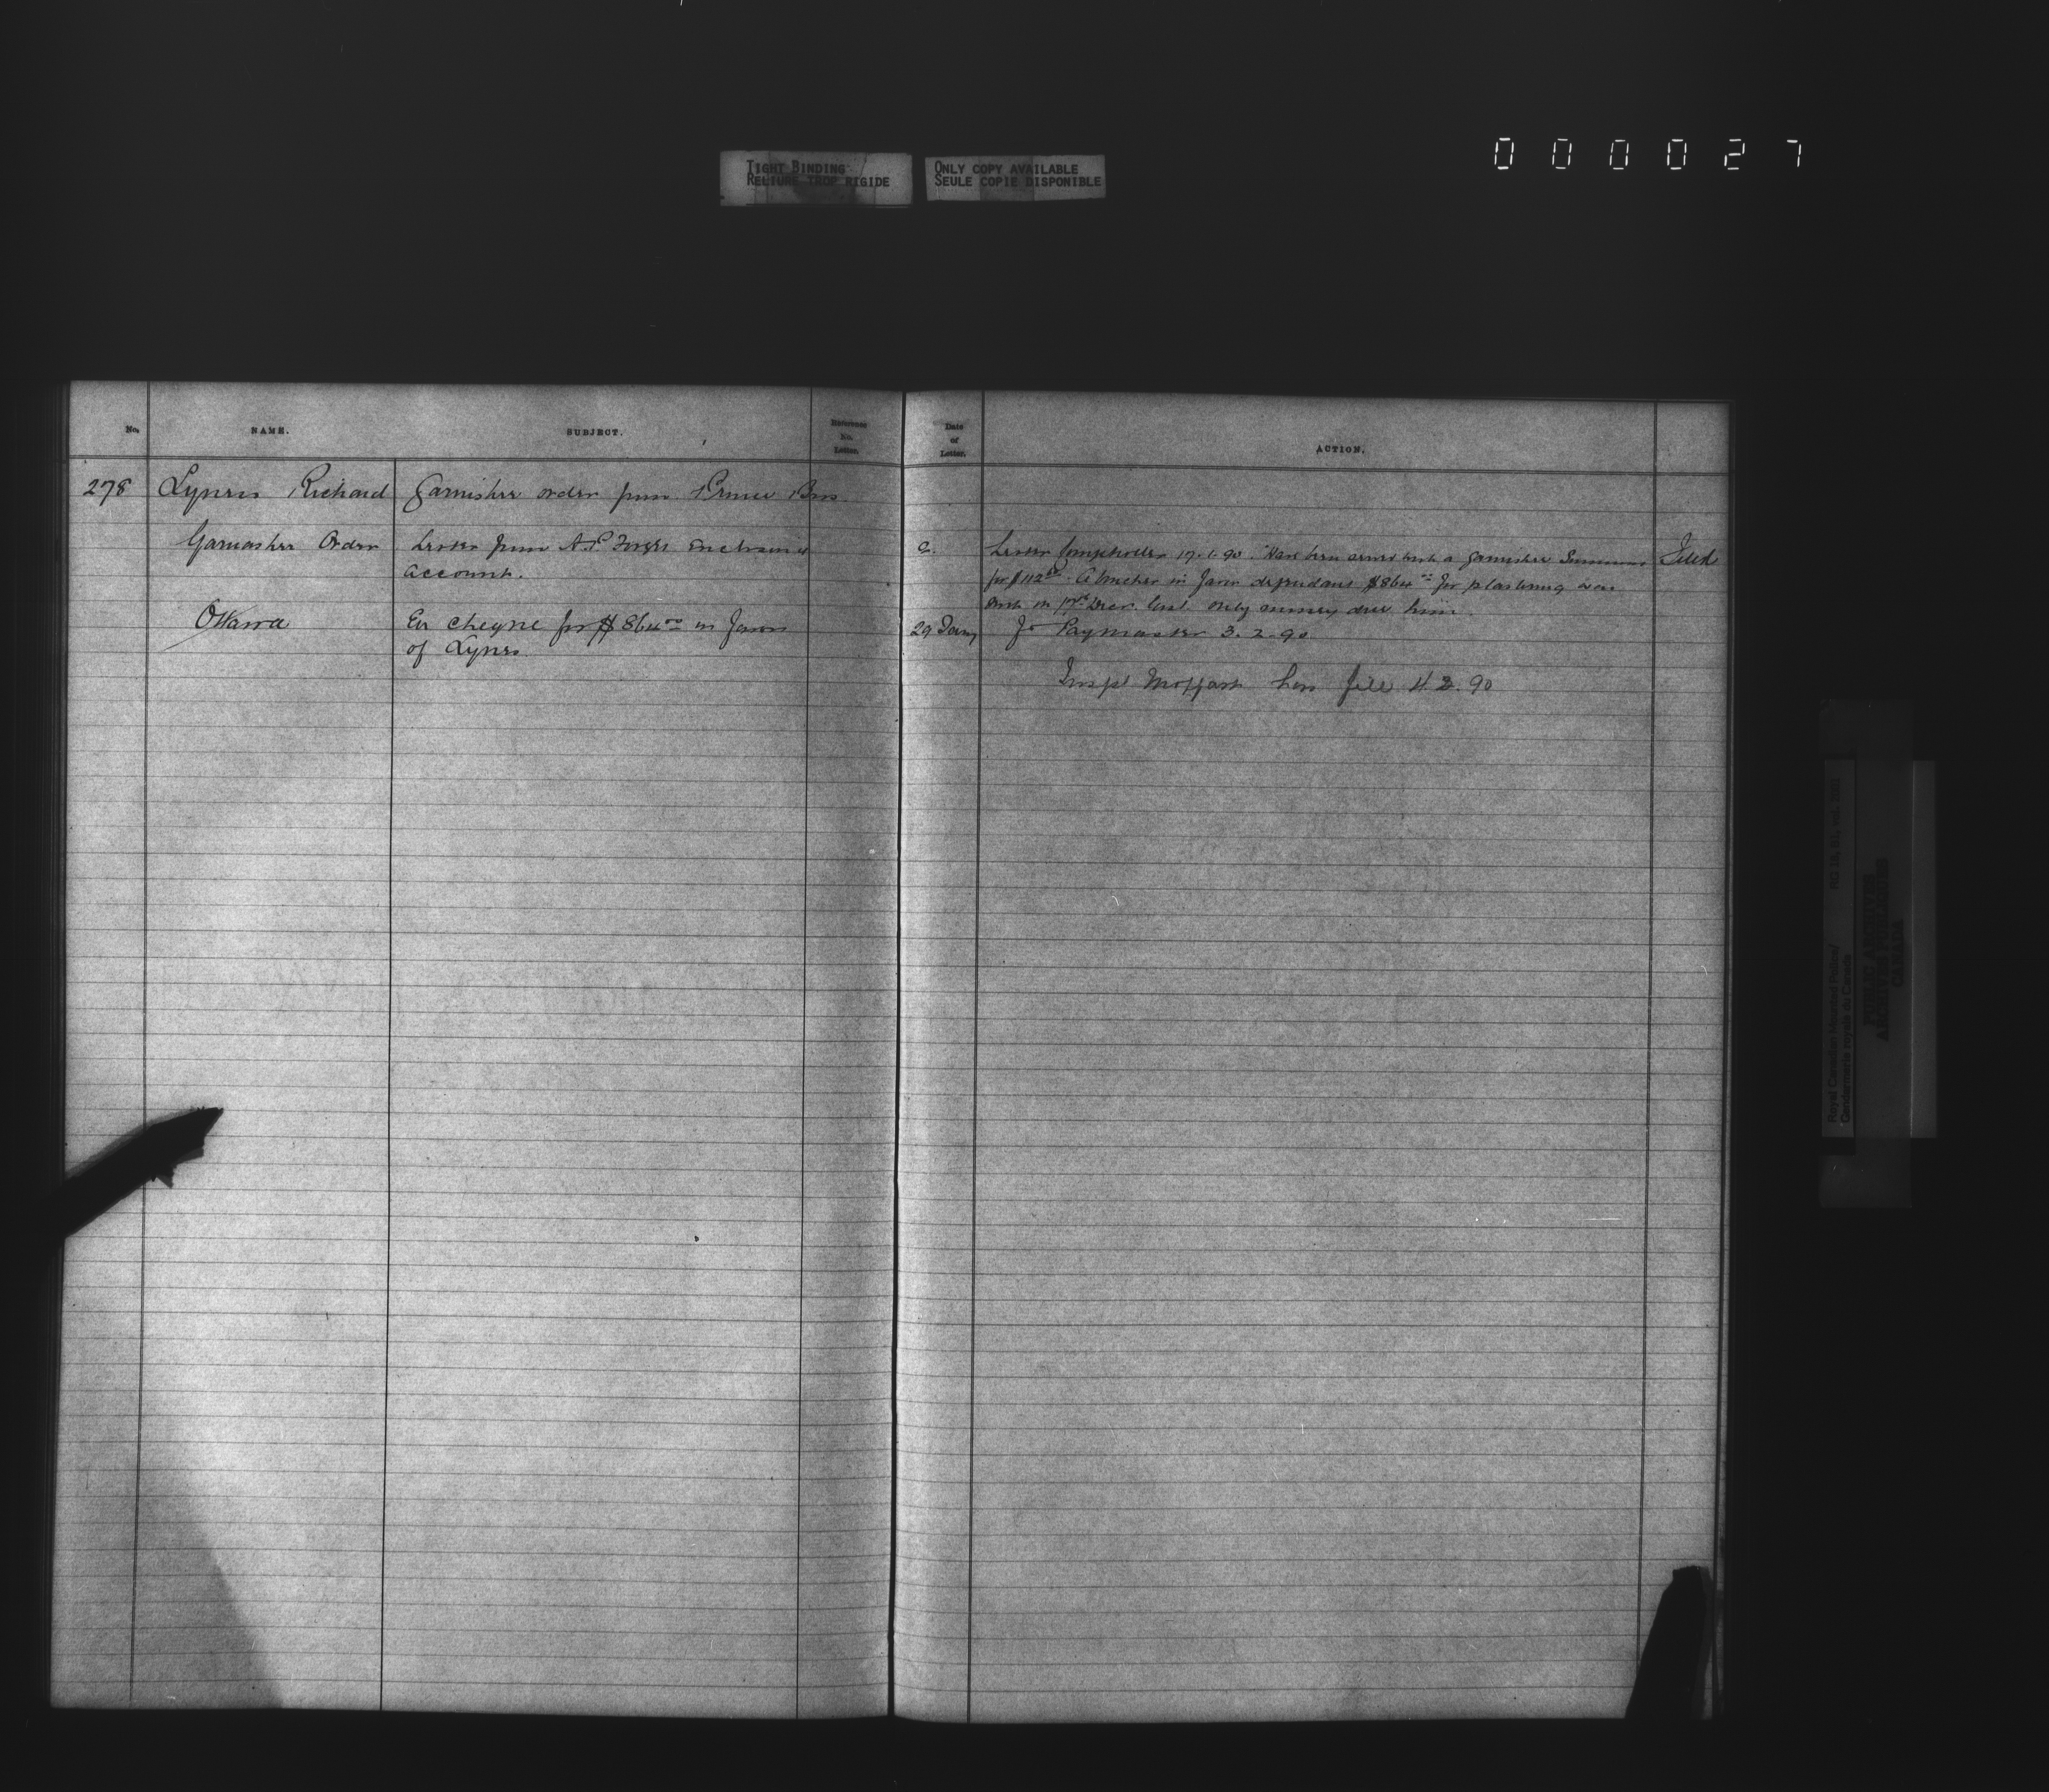 000027
TIGHT BINDING
RELIURE TROP RIGIDE
ONLY COPY AVAILABLE
SEULE COPIE DISPONIBLE
No. NAME. SUBJECT. Reference No. Letter. Date of Letter. ACTION.
278 Lynes Richard Garnishee order from Prince Bros
Garnashee Order
Letter from A.P. enclosing
account.
Ottawa
En cheque for $864.00 in favor
of Lynes
2.
29 Jany
Letter Comptroller 17.1.90. Have been served with a Garnishee Summons
for $112 in favor dependant $864.00 for plastering was
sent on 17th Decr. last only money due him.
To Paymaster 3.2.90
Inspt Moffatt has file 4.2.90
Filed
Royal Canadian Mounted Police/
Gendarmerie royale du Canada
RG 18, B1, vol.
PUBLIC ARCHIVES
ARCHIVES PUBLIQUES
CANADA